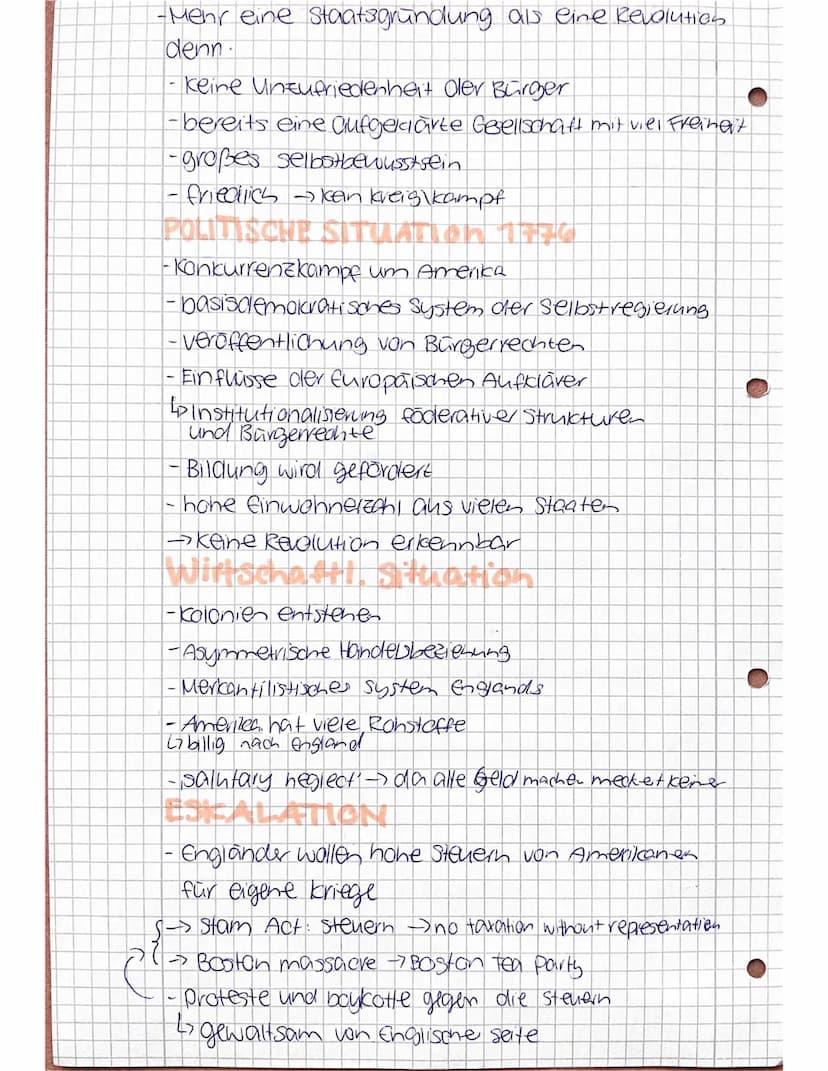 -Mehr eine Staatsgründung als eine Revolution
denn:
- keine Unzufriedenheit der Bürger
- bereits eine aufgeklärte Gesellschaft mit viel Freiheit
- großes selbstbewusstsein
- friedlich → kein kreig\kampf
POLITISCHE SITUATION 1776
- Konkurrenzkampf um Amerika
- basisdemokratisches System der Selbstregierung
- veröffentlichung von Bürgerrechten
- Einflüsse der Europäischen Aufklärer
↳ Institutionalisierung föderativer Strukturen
und Bürgerrechte
- Bildung wird gefördert
- hohe Einwohnerzahl aus vielen Staaten
→ keine Revolution erkennbar
Wirtschaftl. Situation
- Kolonien entstehen
- Asymmetrische Handelsbeziehung
- Merkantilistisches system Englands
- Amerika hat viele Rohstoffe
↳ billig nach England
- ,salutary neglect' → da alle Geld machen mecket keiner
ESKALATION
- Engländer wollen hohe Steuern von Amerikanen
für eigene kriege
→ Stam Act: steuern → no taxation without representation
→ Boston massacre → Boston tea party
- Proteste und boykotte gegen die steuern
↳ gewaltsam von Englische seite